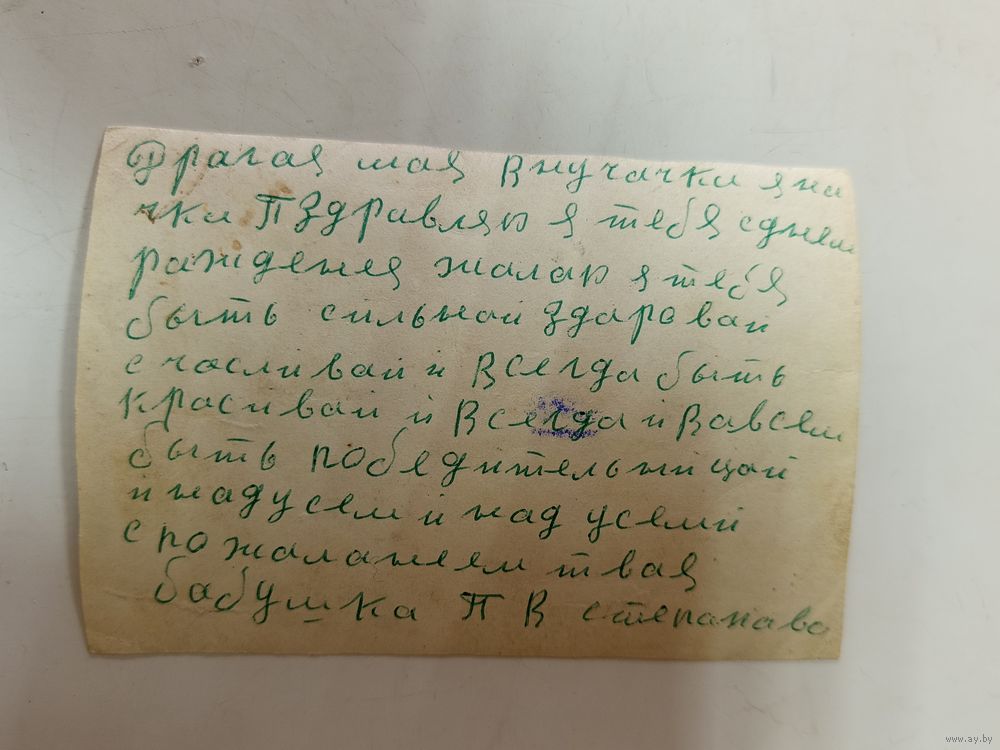 Драгая мая Внучачка яна
чка Пздравляю я тебя сднем
ражденея жалаю я тебя
быть сильнай здаровай
счасливай и Всегда быть
красивай и Всегда и Вавсем
быть победительницай
и надусем и над усеми
спожаланеем твая
бабушка П В степанава
www.ay.by